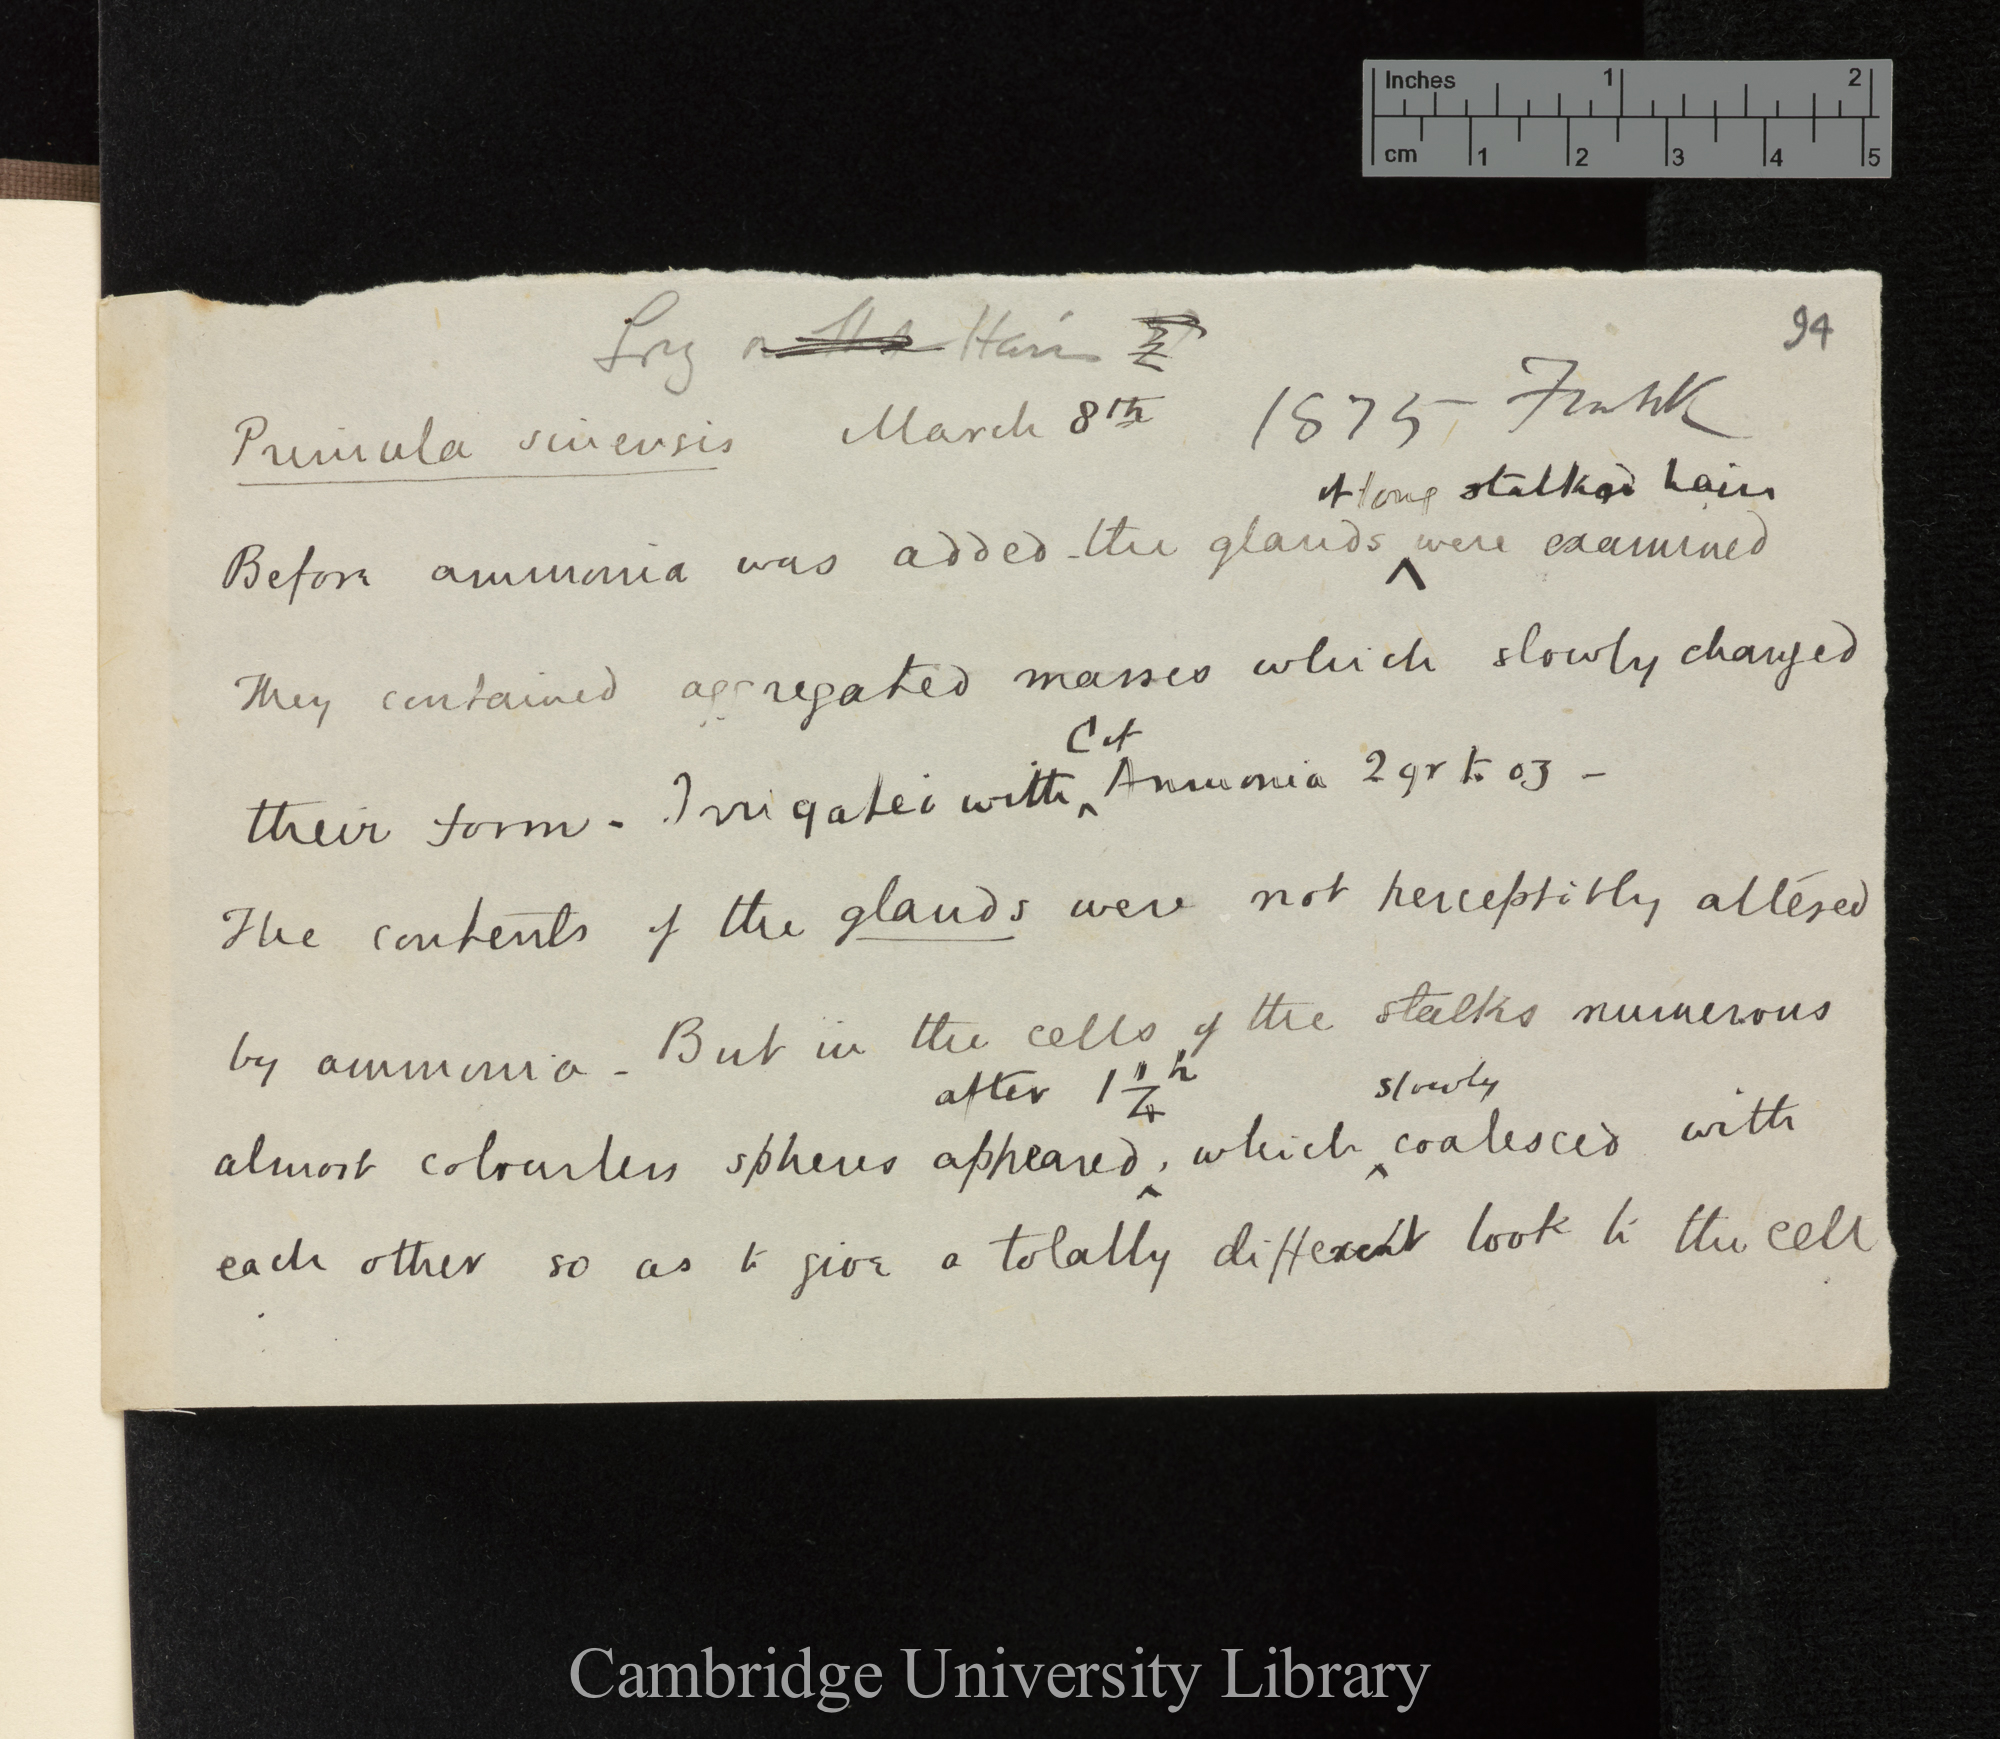 Inches 1 2
cm 1 2 3 4 5
94
Long Hairs
Primula sinensis March 8th 1875 Frank
of long stalked hairs
Before ammonia was added the glands ^ were examined
They contained aggregated masses which slowly changed
C of
their form - Irrigated with ^ Ammonia 2 gr to oz -
The contents of the glands were not perceptibly altered
by ammonia - But in the cells of the stalks numerous
after 1 1/4 h slowly
almost colourless spheres appeared ^, which ^ coalesced with
each other so as to give a totally different look to the cell
Cambridge University Library